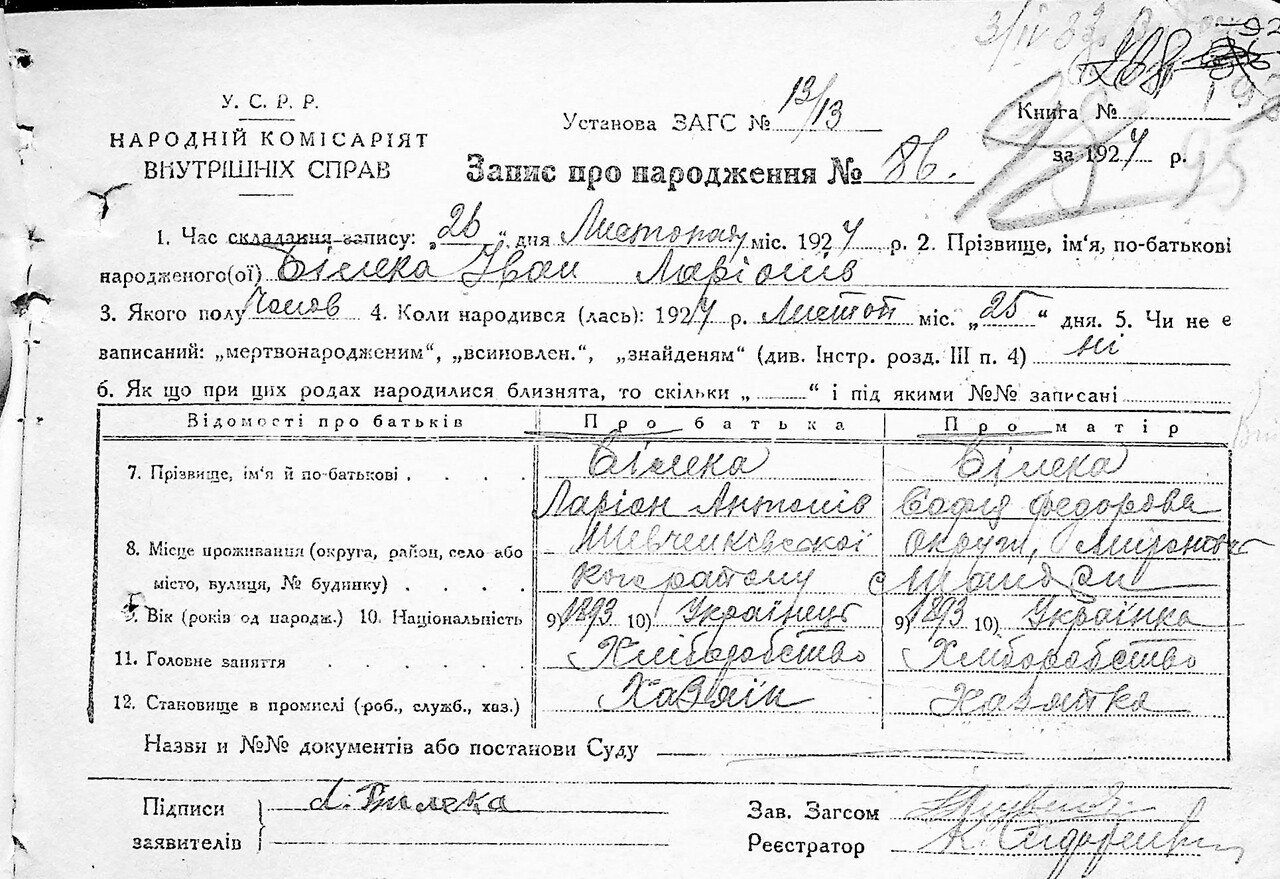 3/IV 83
268
У. С. Р. Р.
НАРОДНІЙ КОМІСАРІЯТ
ВНУТРІШНІХ СПРАВ
Установа ЗАГС № 13/13
Книга №
за 1927 р.
Запис про народження № 86.
1. Час складання запису: „26“ дня Листопад міс. 1927 р. 2. Прізвище, ім'я, по-батькові
народженого(ої) Білека Іван Ларіонів
3. Якого полу Чолов 4. Коли народився (лась): 1927 р. Листоп міс. „25“ дня. 5. Чи не є
записаний: „мертвонародженим“, „всиновлен.“, „знайденям“ (див. Інстр. розд. III п. 4) ні
6. Як що при цих родах народилися близнята, то скільки „ “ і під якими №№ записані
Відомості про батьків Про батька Про матір
7. Прізвище, ім'я й по-батькові . . . . Білека Білека
Ларіон Антонів Софія Федорова
8. Місце проживання (округа, район, село або Шевченківської округи,
місто, вулиця, № будинку) . . . . району с
9. Вік (років од народж.) 10. Національність 9) 1893 10) Українець 9) 1893 10) Українка
11. Головне заняття . . . . . . Хліборобство Хліборобство
12. Становище в промислі (роб., служб., хаз.) Хазяїн Хазяйка
Назви и №№ документів або постанови Суду
Підписи Л. Білека
заявителів
Зав. Загсом
Реєстратор К.